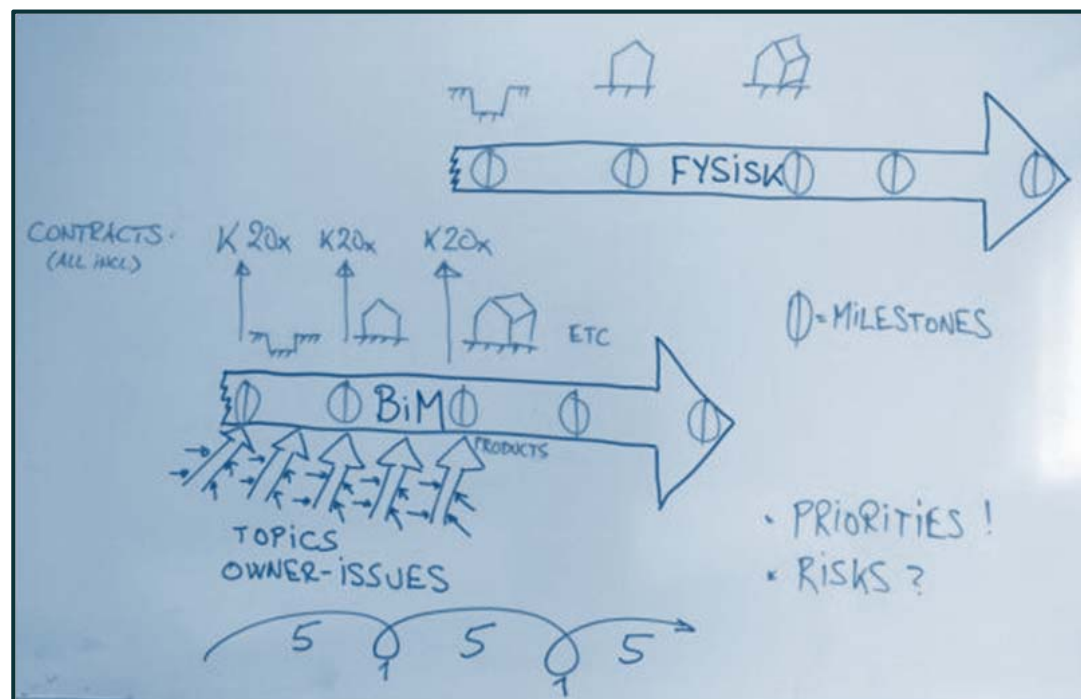 FYSiSK
CONTRACTS.
(ALL iNCL)
K 20x K20x K20x
ETC
= MiLESTONES
BiM
PRODUCTS
TOPICS
OWNER-ISSUES
· PRiORiTiES !
· RiSKS ?
5 5 5
1 1